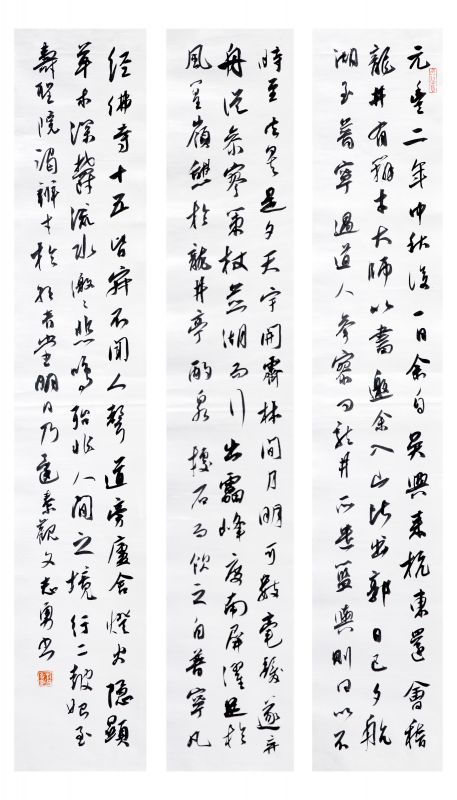 元豐二年仲秋後一日余自吳興來杭東還會稽
龍井有辨才大師以書邀余入山比出郭日已夕航
湖至普寧遇道人參寥問龍井所遣籃輿則曰以不
時至去矣是夕天宇開霽林間月明可數毫髮遂弃
舟從參寥策杖並湖而行出雷峰度南屏濯足於
風篁嶺憩於龍井亭酌泉據石而飲之自普寧凡
經佛寺十五皆寂不聞人聲道旁廬舍燈火隱顯
草木深鬱流水激々悲鳴殆非人間之境行二鼓始至
壽聖院謁辨才於朝音堂明日乃還秦觀文志勇書